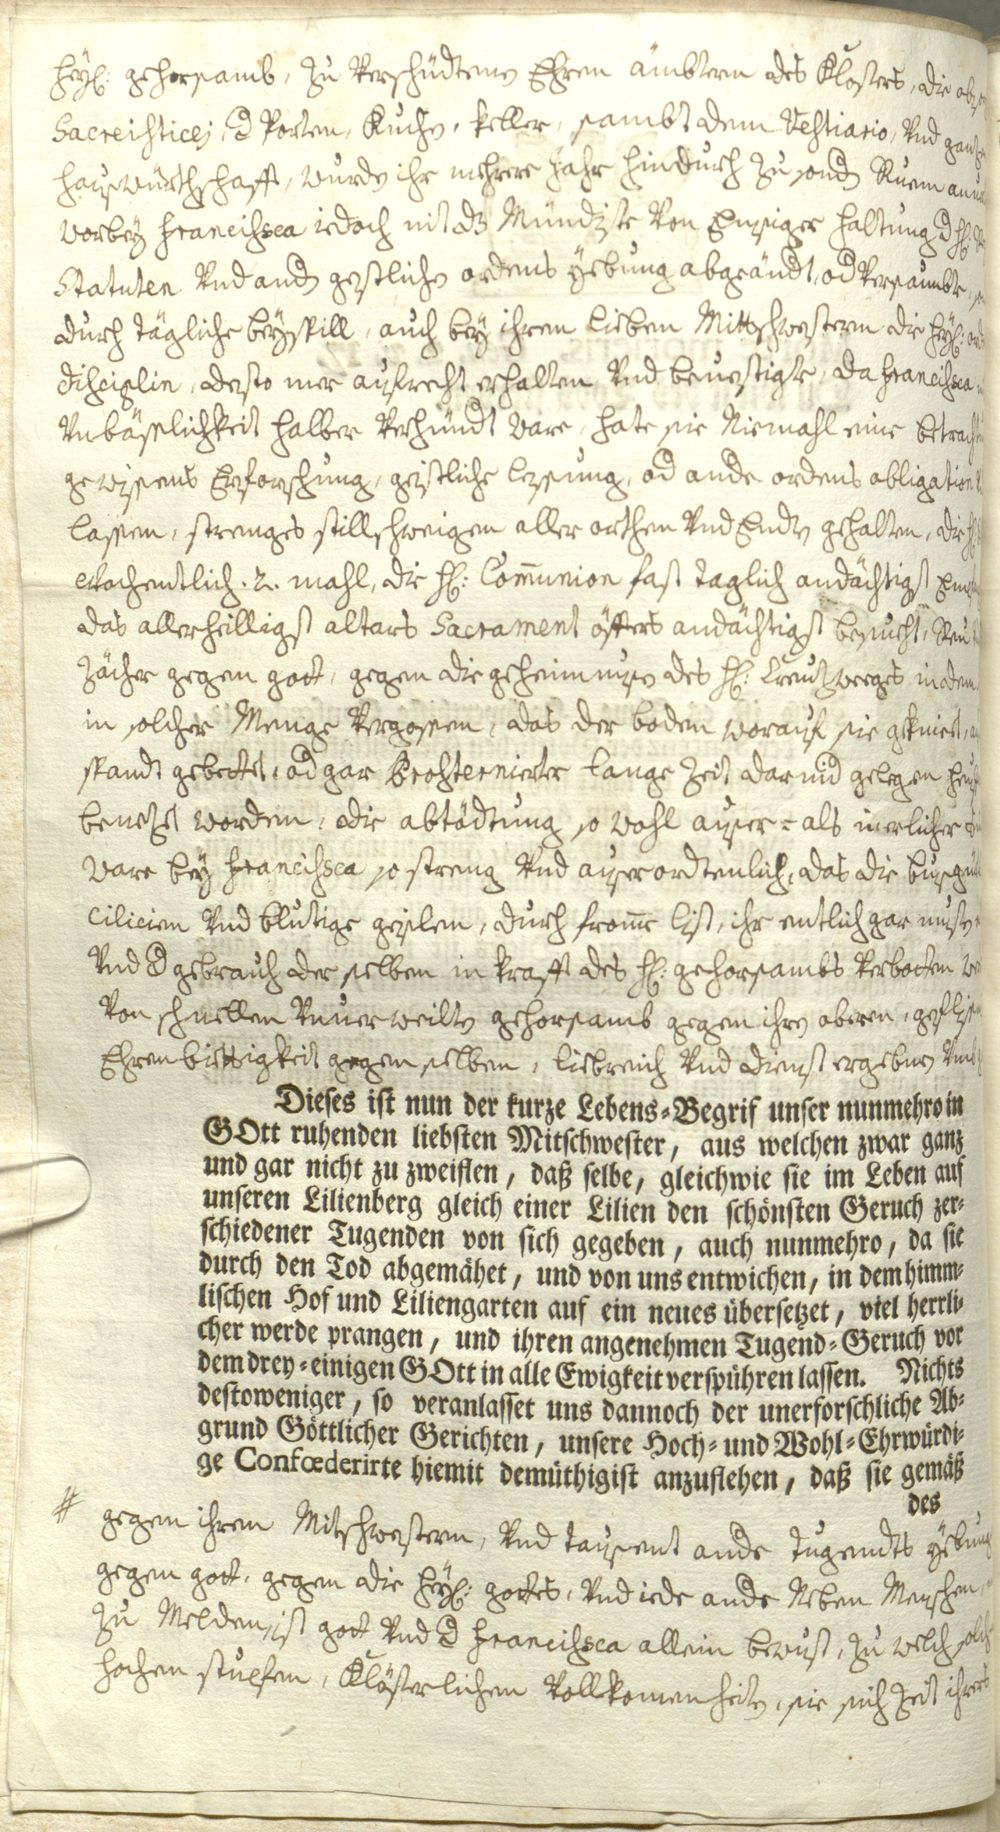 heyl: gehorsamb, zu verschidtenen Ehren ämbtern des Klosters, die
Sacreisticej, d Porten, Kuchen, Keller, sambt dem Vestiario, vnd
hauswürthschafft, wurde ihr mehrere Jahr hindurch zu Ruem
Vorbey Francisca iedoch nit dz Mündiste von Emsiger haltung d hl:
Statuten vnd and geistliche ordens yebung abgeändt, od versaumbt,
durch tägliche beyspill, auch bey ihren lieben Mittschwestern die heyl:
disciplin, desto mer aufrecht erhalten vnd beuestigte, da Francisca
Vnbässlichkeit halber verhindt ware, hate sie Niemahl eine
gewissens Erforschung, geistliche lessung, od ande ordens obligation
lassen, strenges stillschweigen aller orthen vnd Endts gehalten, die hl:
wochentlich .2. mahl, die hl: Communion fast taglich andächtigst
das allerheilligst altars Sacrament öffters andächtigst besucht, Reu
Zächer gegen gott, gegen die geheimnusse des hl: Creutzweegs indem
in solcher Menge vergossen, das der boden worauf sie gekniet,
standt gebettet, od gar Prosternierter lange Zeit darnid gelegen
benetzet worden, die abtödtung so wohl auser= als inerlicher
ware bey Francisca so streng vnd auserordtenlich, das die
cilicien vnd blutige geislen, durch fromme list, ihr entlich gar
vnd d gebrauch der selben in krafft des hl: gehorsambs verbotten
Von schnellen vnuerweilten gehorsamb gegen ihre oberen,
Ehrenbiettigkeit gegen selben, liebreich vnd dienst ergebnen
Dieses ist nun der kurze Lebens=Begrif unser nunmehro in
GOtt ruhenden liebsten Mitschwester, aus welchen zwar ganz
und gar nicht zu zweiflen, daß selbe, gleichwie sie im Leben auf
unseren Lilienberg gleich einer Lilien den schönsten Geruch zer=
schiedener Tugenden von sich gegeben, auch nunmehro, da sie
durch den Tod abgemähet, und von uns entwichen, in dem himm=
lischen Hof und Liliengarten auf ein neues übersetzet, viel herrli=
cher werde prangen, und ihren angenehmen Tugend=Geruch vor
dem drey=einigen GOtt in alle Ewigkeit verspühren lassen. Nichts
destoweniger, so veranlasset uns dannoch der unerforschliche Ab=
grund Göttlicher Gerichten, unsere Hoch= und Wohl=Ehrwürdi=
ge Confœderirte hiemit demüthigist anzuflehen, daß sie gemäß
des
# gegen ihren Mitschwestern, vnd tausent ande tugendts yebung
gegen gott, gegen die heyl: gottes, vnd iede ande Neben Menschen,
zu Melden, ist gott vnd d Francisca allein bewust, zu welch
hochen stupfen, Klösterlichen vollkomenheiten, sie sich Zeit ihres